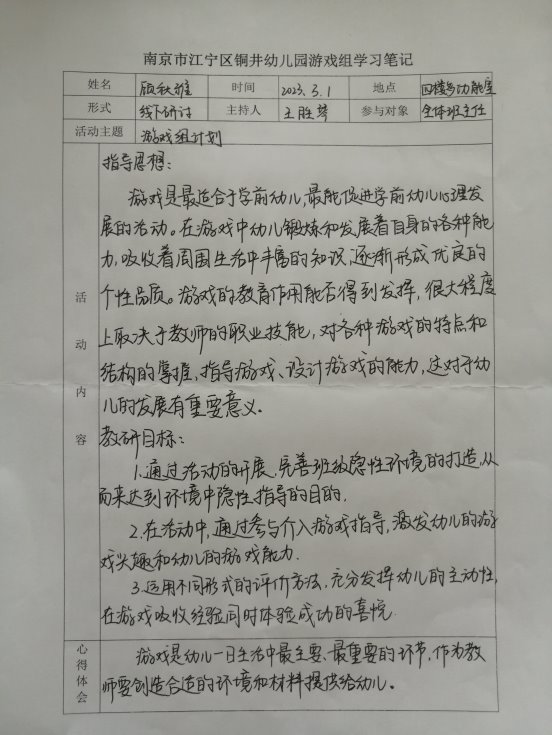 南京市江宁区铜井幼儿园游戏组学习笔记
姓名 顾秋雅 时间 2023.3.1 地点 四楼多功能室
形式 线下研讨 主持人 王胜琴 参与对象 全体班主任
活动主题 游戏组计划
活动内容
指导思想：
游戏是最适合于学前幼儿，最能促进学前幼儿心理发
展的活动。在游戏中幼儿锻炼和发展着自身的各种能
力，吸收着周围生活中丰富的知识，逐渐形成优良的
个性品质。游戏的教育作用能否得到发挥，很大程度
上取决于教师的职业技能，对各种游戏的特点和
结构的掌握，指导游戏、设计游戏的能力，这对于幼
儿的发展有重要意义。
教研目标：
1.通过活动的开展，完善班级隐性环境的打造，从
而来达到环境中隐性指导的目的.
2.在活动中，通过参与介入游戏指导，激发幼儿的游
戏兴趣和幼儿的游戏能力.
3.运用不同形式的评价方法，充分发挥幼儿的主动性，
在游戏吸收经验同时体验成功的喜悦.
心得体会
游戏是幼儿一日生活中最主要、最重要的环节，作为教
师要创造合适的环境和材料提供给幼儿。